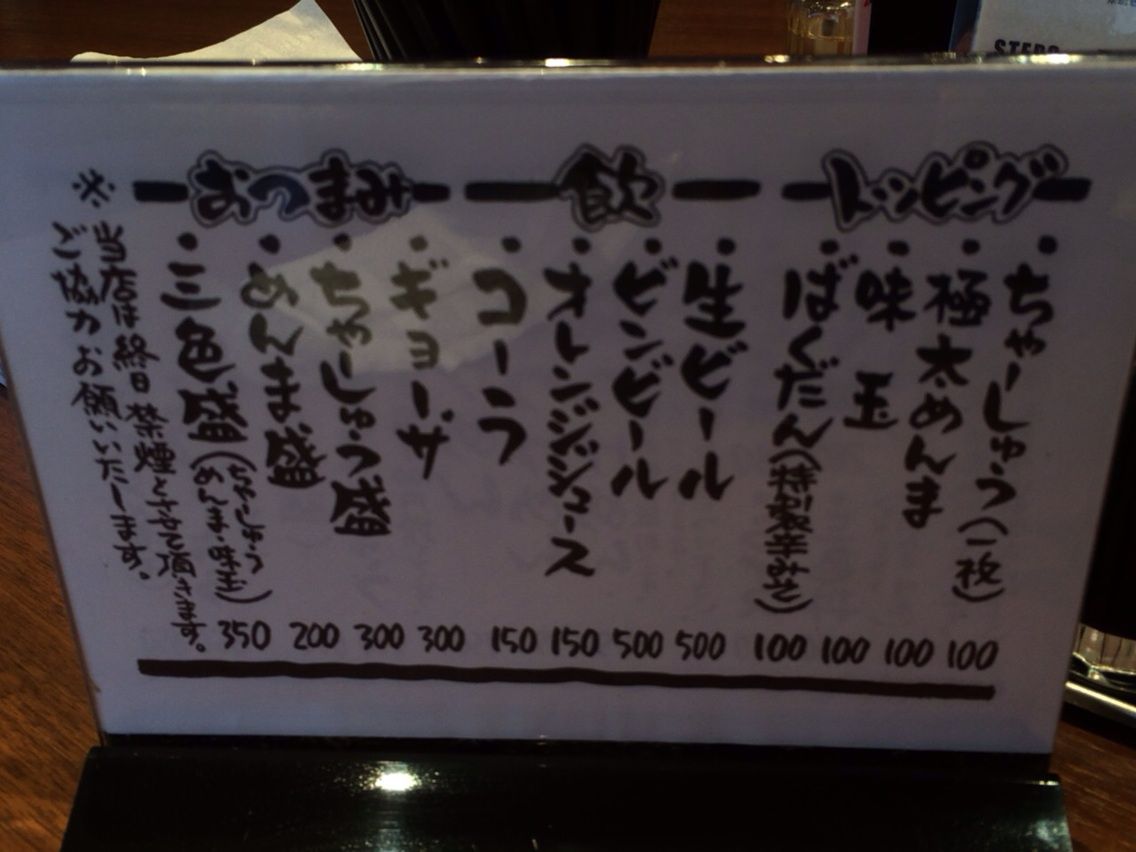 トッピング
・ちゃーしゅう(一枚) 100
・極太めんま 100
・味玉 100
・ばくだん(特製辛みそ) 100
飲
・生ビール 500
・ビンビール 500
・オレンジジュース 150
・コーラ 150
おつまみ
・ギョーザ 300
・ちゃーしゅう盛 300
・めんま盛 200
・三色盛(ちゃーしゅう
めんま・味玉) 350
※当店は終日禁煙とさせて頂きます。
ご協力お願いいたします。